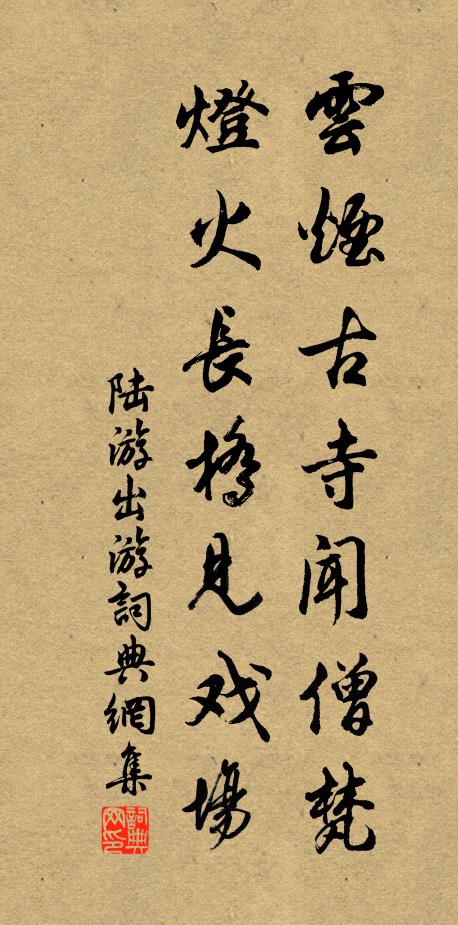 雲煙古寺聞僧梵
燈火長橋見戏場
陆游出游詞典網集
詞典网印